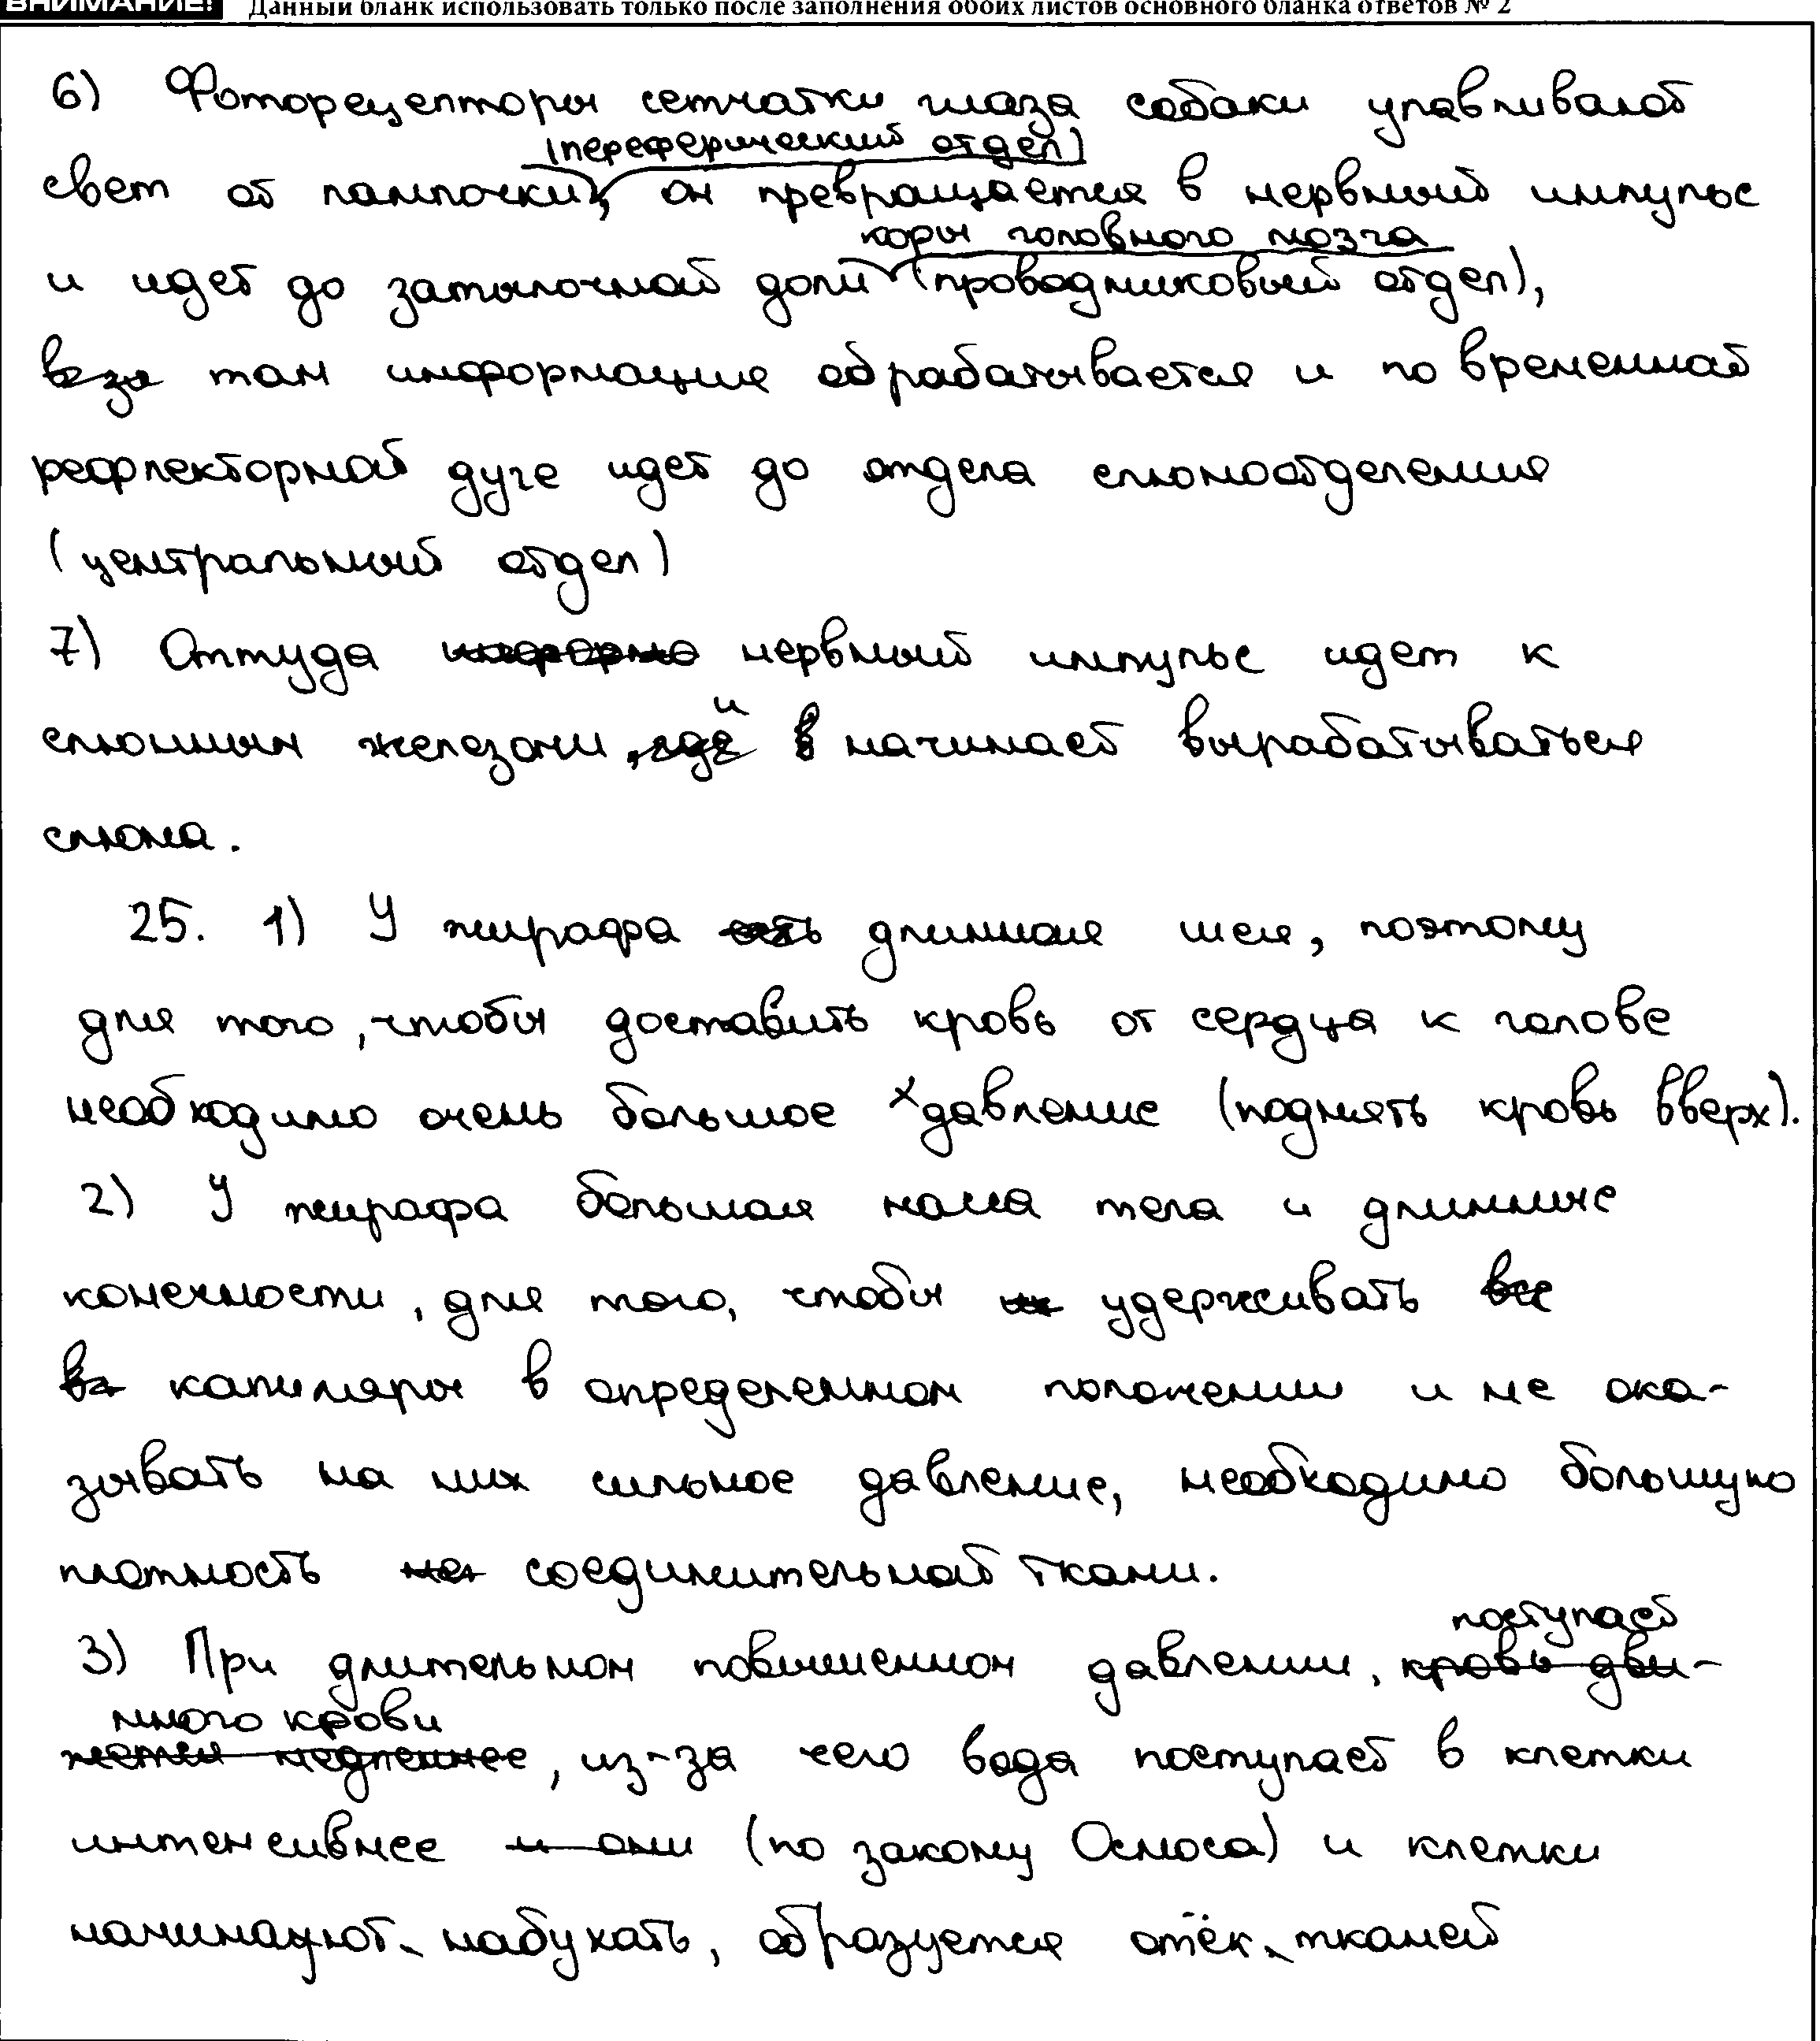 ВНИМАНИЕ! Данный бланк использовать только после заполнения обоих листов основного бланка ответов № 2
6) Фоторецепторы сетчатки глаза собаки улавливают
(переферический отдел)
свет от лампочки, он превращается в нервный импульс
коры головного мозга
и идет до затылочной доли (проводниковый отдел),
там информация обрабатывается и по временной
рефлекторной дуге идет до отдела слюноотделения
(центральный отдел)
7) Оттуда нервный импульс идет к
слюнным железам и начинает вырабатываться
слюна.
25. 1) У жирафа длинная шея, поэтому
для того, чтобы доставить кровь от сердца к голове
необходимо очень большое давление (поднять кровь вверх).
2) У жирафа большая масса тела и длинные
конечности, для того, чтобы удерживать
капилляры в определенном положении и не ока-
зывать на них сильное давление, необходимо большую
плотность соединительной ткани.
поступает
3) При длительном повышенном давлении, кровь дви-
много крови
жется медленнее, из-за чего вода поступает в клетки
интенсивнее и они (по закону Осмоса) и клетки
начинают набухать, образуется отёк тканей